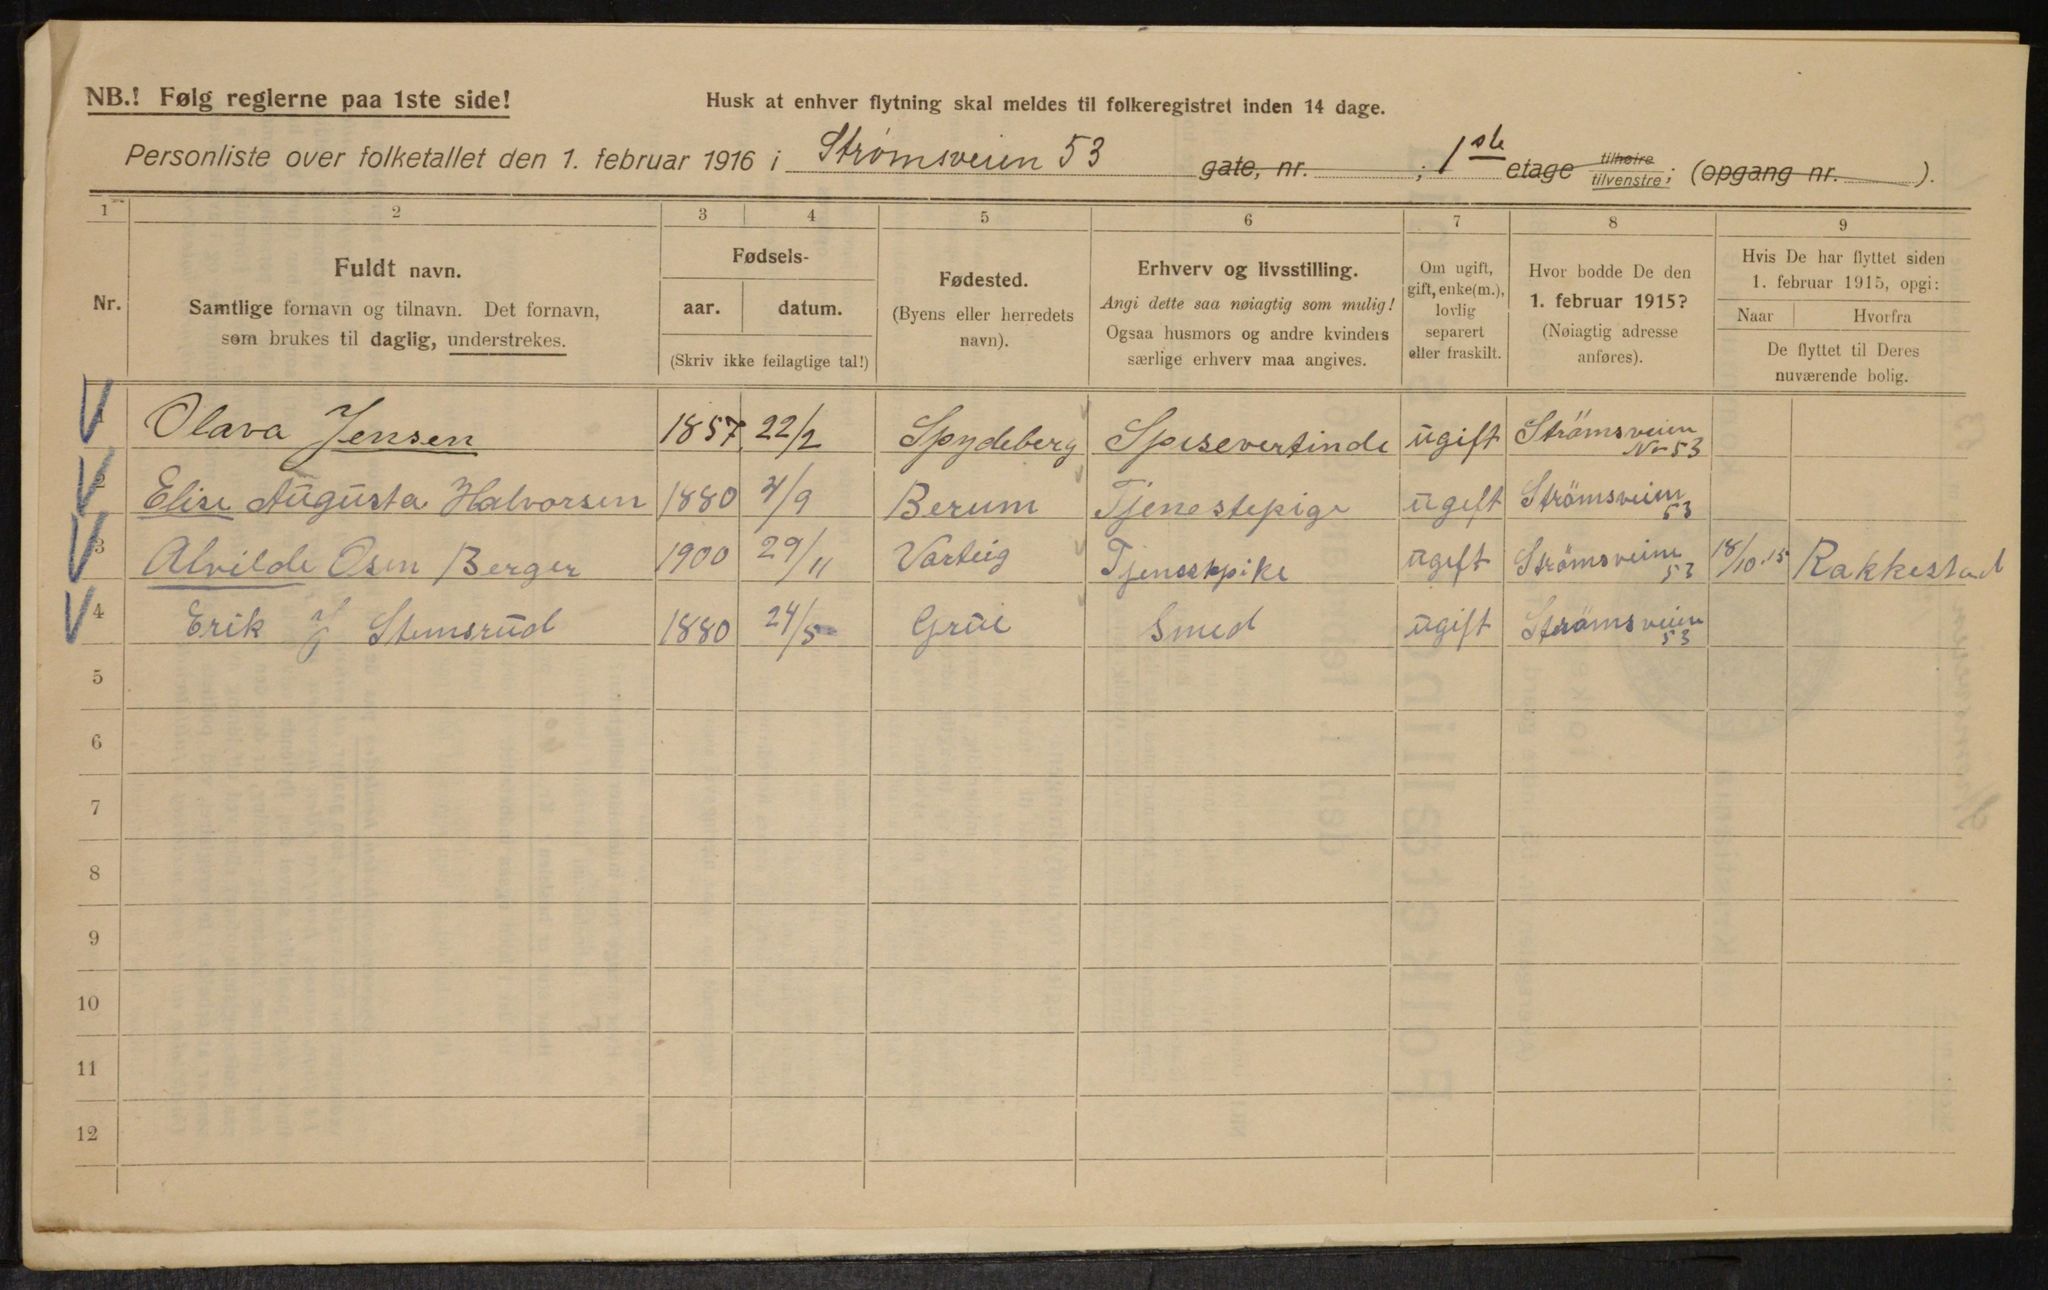 NB.! Følg reglerne paa 1ste side!
Husk at enhver flytning skal meldes til folkeregistret inden 14 dage.
Personliste over folketallet den 1. februar 1916 i Strømsveien 53 gate, nr. ; 1ste etage tilhøire tilvenstre; (opgang nr. ).
1 2 3 4 5 6 7 8 9
Nr.
Fuldt navn.
Samtlige fornavn og tilnavn. Det fornavn,
som brukes til daglig, understrekes.
Fødsels-
aar. datum.
(Skriv ikke feilagtige tal!)
Fødested.
(Byens eller herredets
navn).
Erhverv og livsstilling.
Angi dette saa nøiagtig som mulig!
Ogsaa husmors og andre kvinders
særlige erhverv maa angives.
Om ugift,
gift, enke(m.),
lovlig
separert
eller fraskilt.
Hvor bodde De den
1. februar 1915?
(Nøiagtig adresse
anføres).
Hvis De har flyttet siden
1. februar 1915, opgi:
Naar Hvorfra
De flyttet til Deres
nuværende bolig.
1 Olava Jensen 1857 22/2 Spydeberg Spisevertinde ugift Strömsveien
Nr 53
2 Elise Augusta Halvorsen 1880 4/9 Berum Tjenestepige ugift Strömsveien
53
3 Alvilde Osen Berger 1900 29/11 Varteig Tjenestpike ugift Strömsveien 18/10.15 Rakkestad
53
4 Erik J Stensrud 1880 24/5 Grue Smed ugift Strömsveien
53
5
6
7
8
9
10
11
12